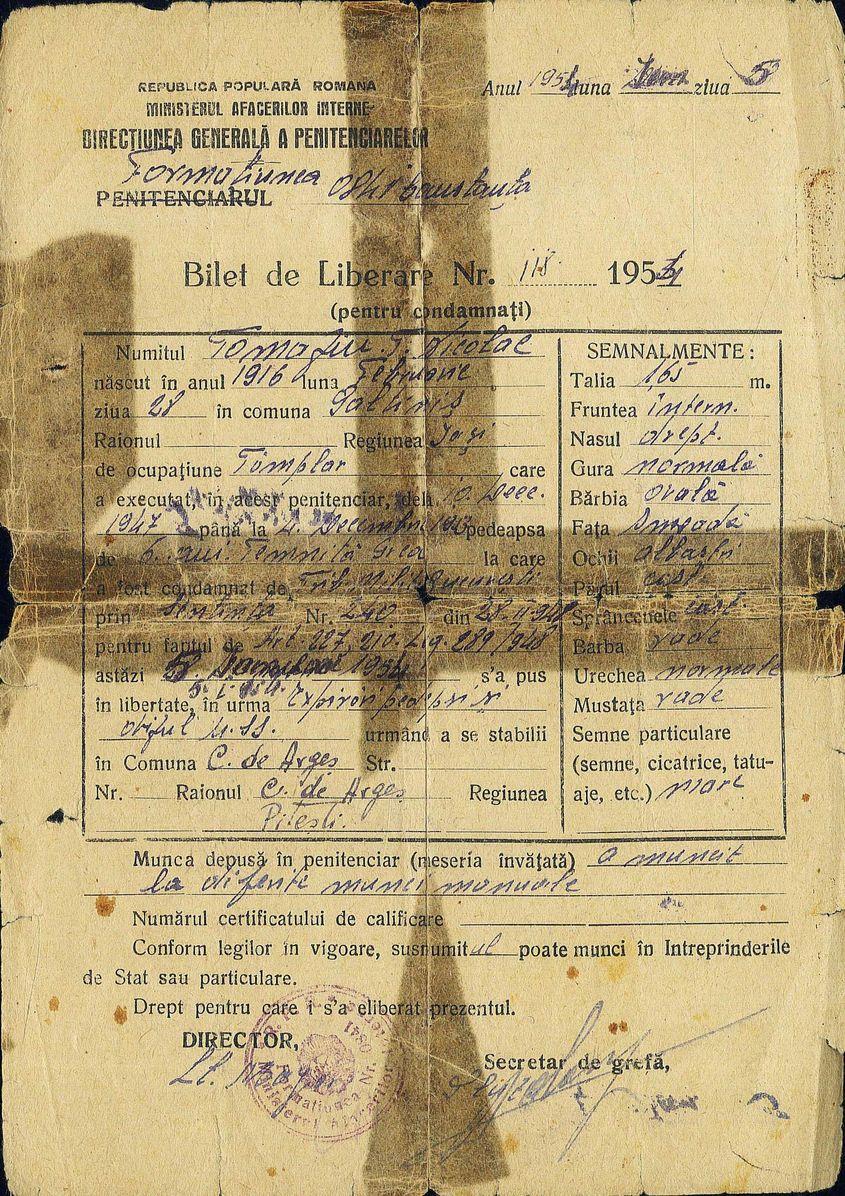 REPUBLICA POPULARĂ ROMANA
MINISTERUL AFACERILOR INTERNE
DIRECȚIUNEA GENERALĂ A PENITENCIARELOR
Anul 1954 luna ziua 5
Formațiunea 0841 Constanța
PENITENCIARUL
Bilet de Liberare Nr. 118 1954
(pentru condamnați)
Numitul Nicolae
născut în anul 1916 luna Februarie
ziua 28 în comuna
Raionul Regiunea Iași
de ocupațiune Tîmplar care
a executat, în acest penitenciar, dela 10 Dec.
1947 până la 4 Decembrie pedeapsa
de 6 ani Temniță Grea la care
a fost condamnat de Trib. Milit. București
prin Sentința Nr. 240 din 28
pentru faptul de Art. 227, 210. Lg. 289/948
astăzi 5 1954 s'a pus
în libertate, în urma
urmând a se stabili
în Comuna C. de Argeș Str.
Nr. Raionul C. de Argeș Regiunea
Pitești.
SEMNALMENTE:
Talia 1,65 m.
Fruntea interm.
Nasul drept.
Gura normală
Bărbia ovală
Fața
Ochii albaștri
Părul cast.
Sprâncenele cast.
Barba rade
Urechea normale
Mustața rade
Semne particulare
(semne, cicatrice, tatu-
aje, etc.)
Munca depusă în penitenciar (meseria învățată) a muncit
la diferite munci manuale
Numărul certificatului de calificare
Conform legilor în vigoare, susnumitul poate munci în Intreprinderile
de Stat sau particulare.
Drept pentru care i s'a eliberat prezentul.
DIRECTOR,
Secretar de grefă,
Lt.
Formațiunea Nr. 0841